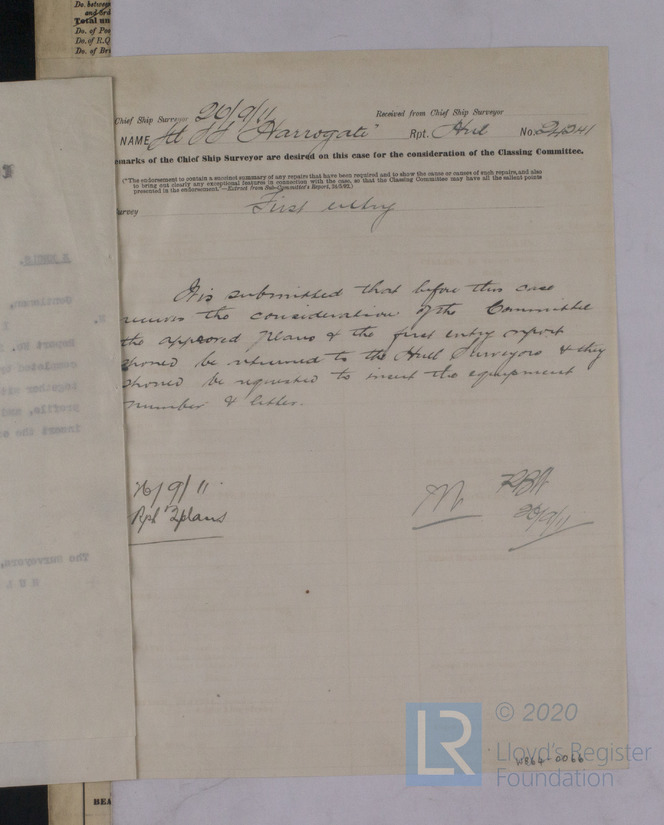 Do. between
and 3rd
Total un
Do. of Poo
Do. of R.Q
Do. of Bri
Chief Ship Surveyor 26/9/11 Received from Chief Ship Surveyor
NAME "Harrogate" Rpt. Hul No: 24241
emarks of the Chief Ship Surveyor are desired on this case for the consideration of the Classing Committee.
(*The endorsement to contain a succinct summary of any repairs that have been required and to show the cause or causes of such repairs, and also
to bring out clearly any exceptional features in connection with the case, so that the Classing Committee may have all the salient points
presented in the endorsement."—Extract from Sub-Committee's Report,
urvey First entry
It is submitted that before this case
receives the consideration of the Committee
the approved plans & the first entry report
should be returned to the Hull Surveyors & they
should be requested to insert the equipment
number & letter.
26/9/11
Rpt 2 plans
26/9/11
BEA
LR © 2020
Lloyd's Register
Foundation
W864-0066